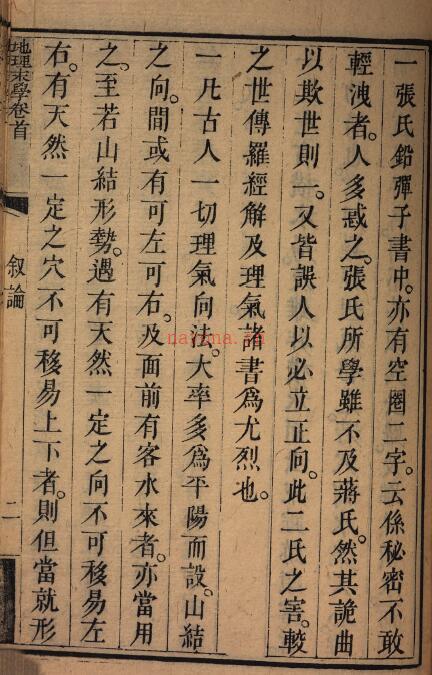 一張氏鉛彈子書中。亦有空圈二字。云係秘密不敢
輕洩者。人多惑之。張氏所學雖不及蔣氏。然其詭曲
以欺世則一。又皆誤人以必立正向。此二氏之害。較
之世傳羅經解及理氣諸書爲尤烈也。
一凡古人一切理氣向法。大率多爲平陽而設。山結
之向。間或有可左可右。及面前有客水來者。亦當用
之。至若山結形勢。遇有天然一定之向不可移易左
右。有天然一定之穴不可移易上下者。則但當就形
地理末學卷首
叙論
二